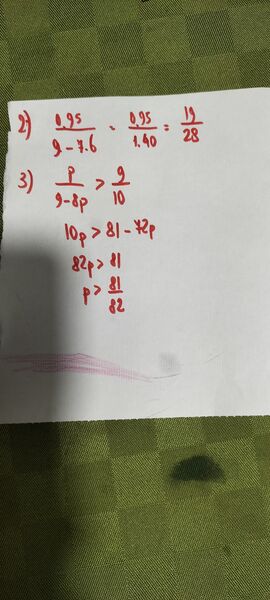 2) 0.95/(9-7.6) - 0.95/1.40 = 19/28
3) p/(9-8p) > 9/10
10p > 81 - 72p
82p > 81
p > 81/82